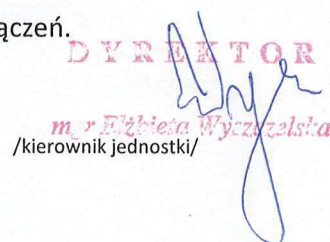 ączeń.
DYREKTOR
mgr Elżbieta Wyszczelska
/kierownik jednostki/